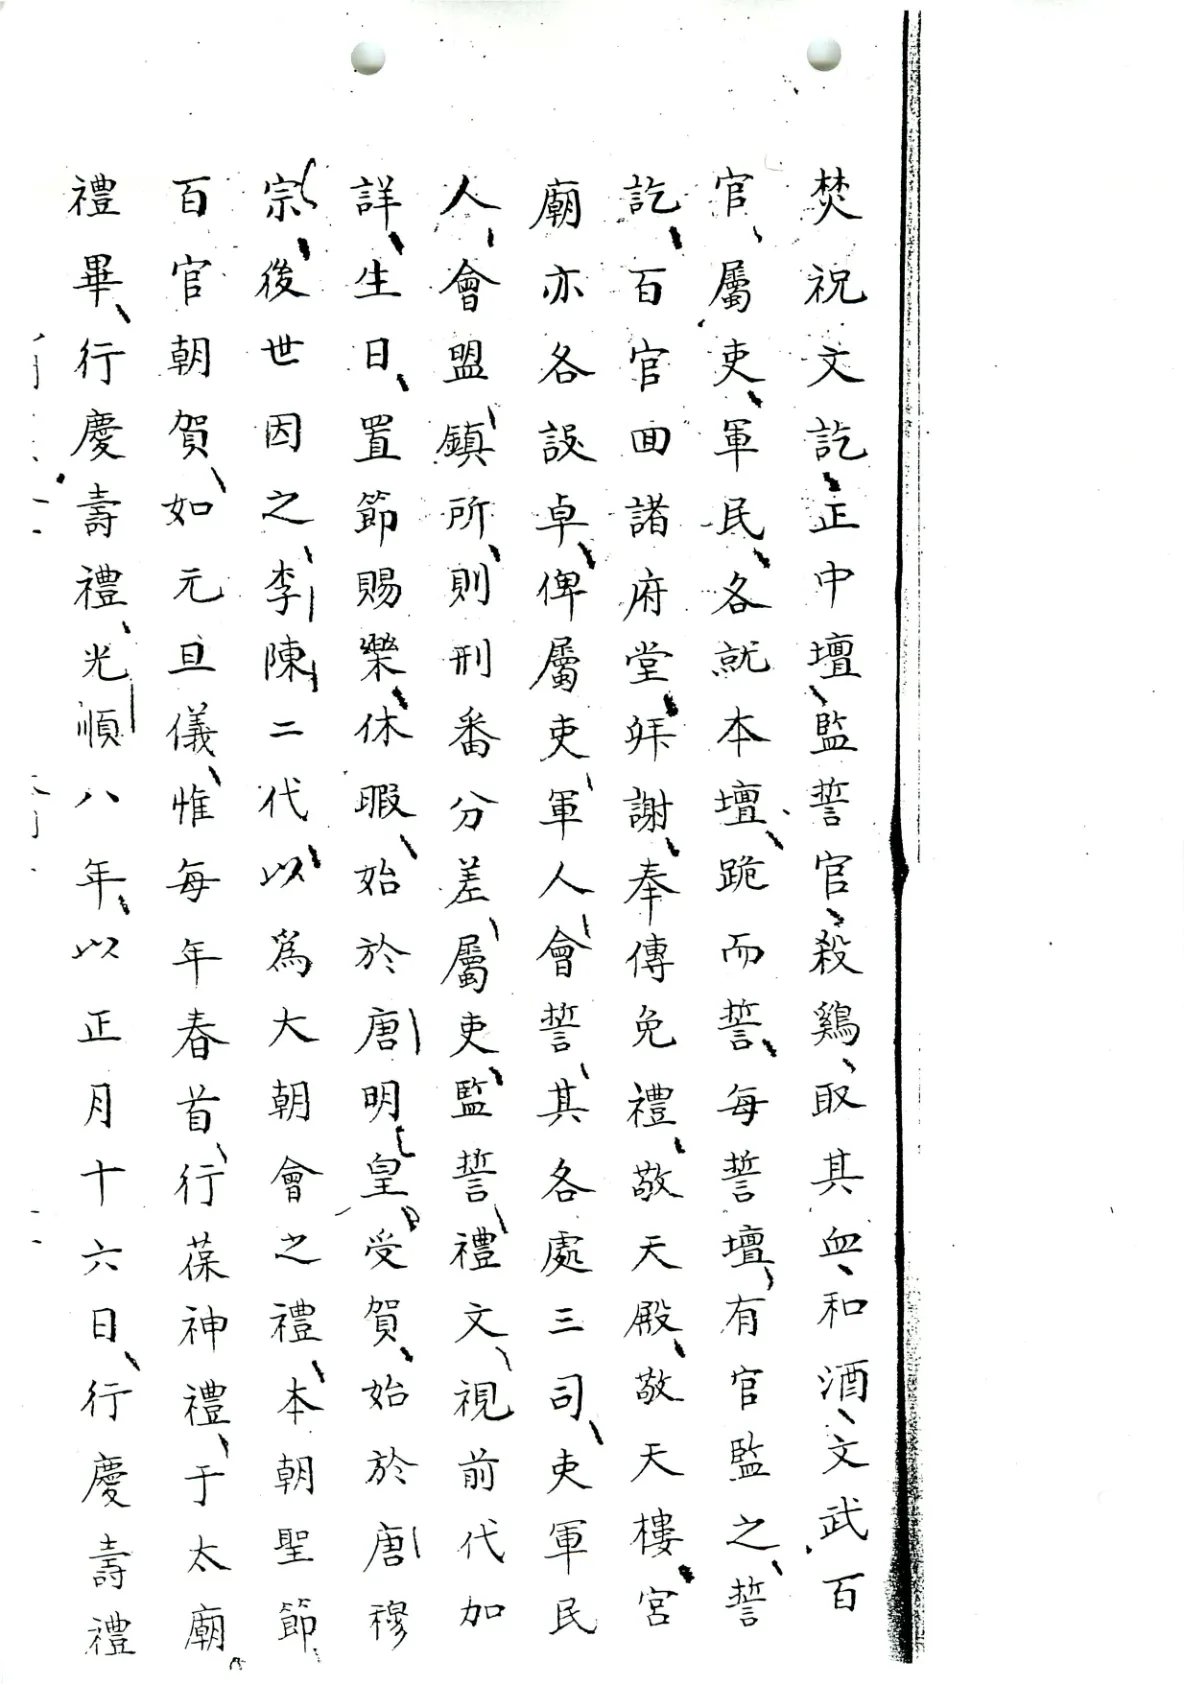 焚祝文訖正中壇監誓官殺鷄取其血和酒文武百
官屬吏軍民各就本壇跪而誓每誓壇有官監之誓
訖百官面諸府堂拜謝奉傳免禮敬天殿敬天樓宮
廟亦各設卓俾屬吏軍人會誓其各處三司吏軍民
人會盟鎮所則刑番分差屬吏監誓禮文視前代加
詳生日置節賜樂休暇始於唐明皇受賀始於唐穆
宗後世因之李陳二代以爲大朝會之禮本朝聖節
百官朝賀如元旦儀惟每年春首行葆神禮于太廟
禮畢行慶壽禮光順八年以正月十六日行慶壽禮